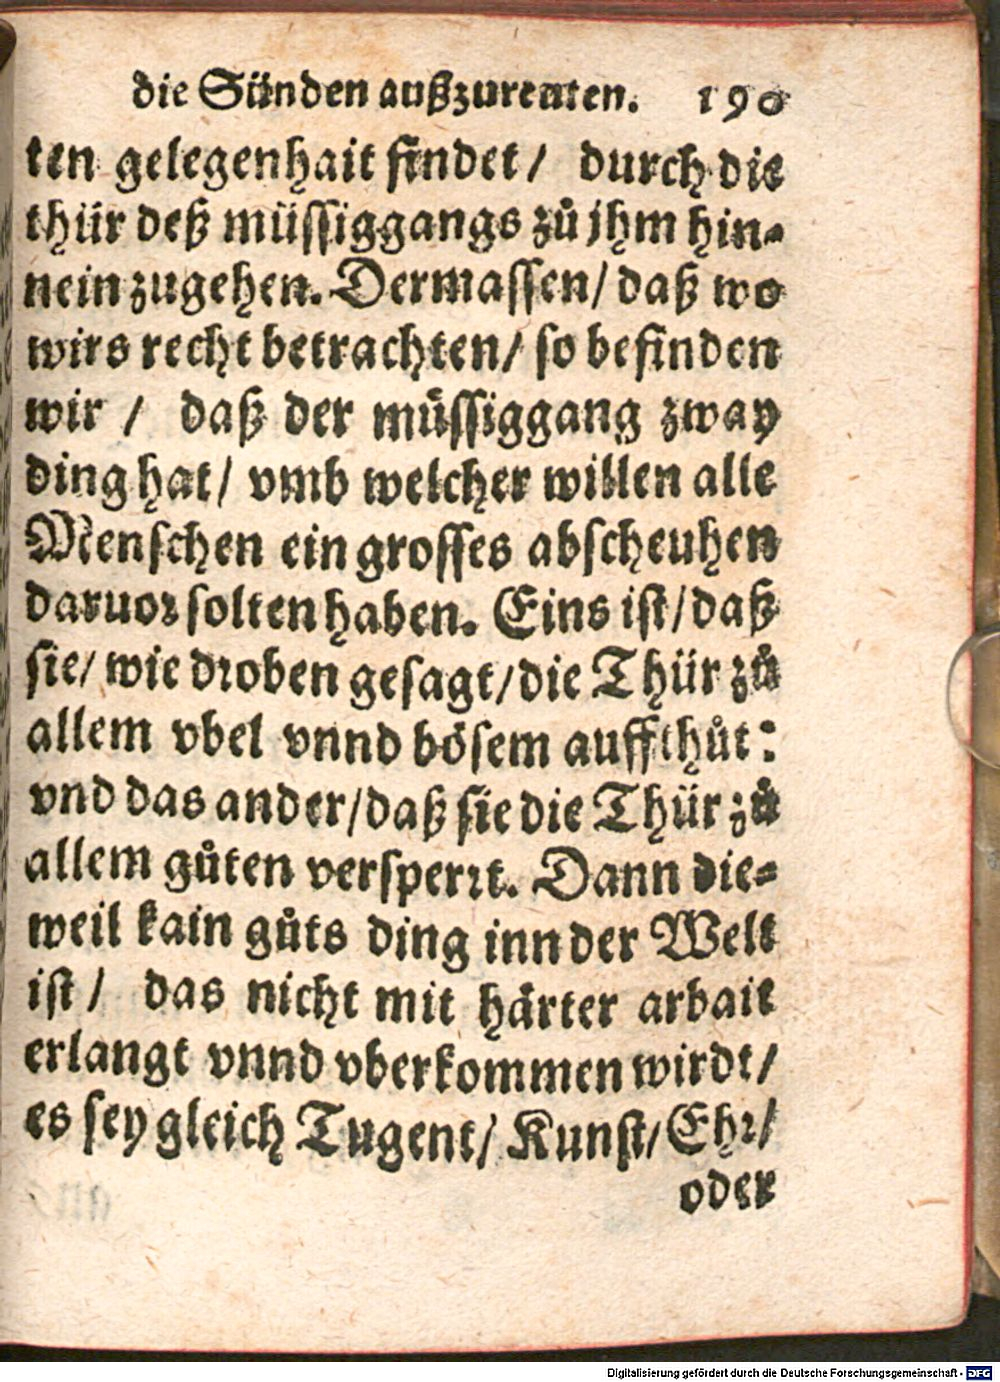 die Sünden außzureuten. 190
ten gelegenhait findet / durch die
thür deß müssiggangs zů jhm hin-
nein zugehen. Dermassen / daß wo
wirs recht betrachten / so befinden
wir / daß der müssiggang zway
ding hat / vmb welcher willen alle
Menschen ein grosses abscheuhen
daruor solten haben. Eins ist / daß
sie / wie droben gesagt / die Thür zů
allem vbel vnnd bösem auffthůt:
vnd das ander / daß sie die Thür zů
allem gůten versperrt. Dann die-
weil kain gůts ding inn der Welt
ist / das nicht mit härter arbait
erlangt vnnd vberkommen wirdt /
es sey gleich Tugent / Kunst / Ehr /
oder
Digitalisierung gefördert durch die Deutsche Forschungsgemeinschaft - DFG